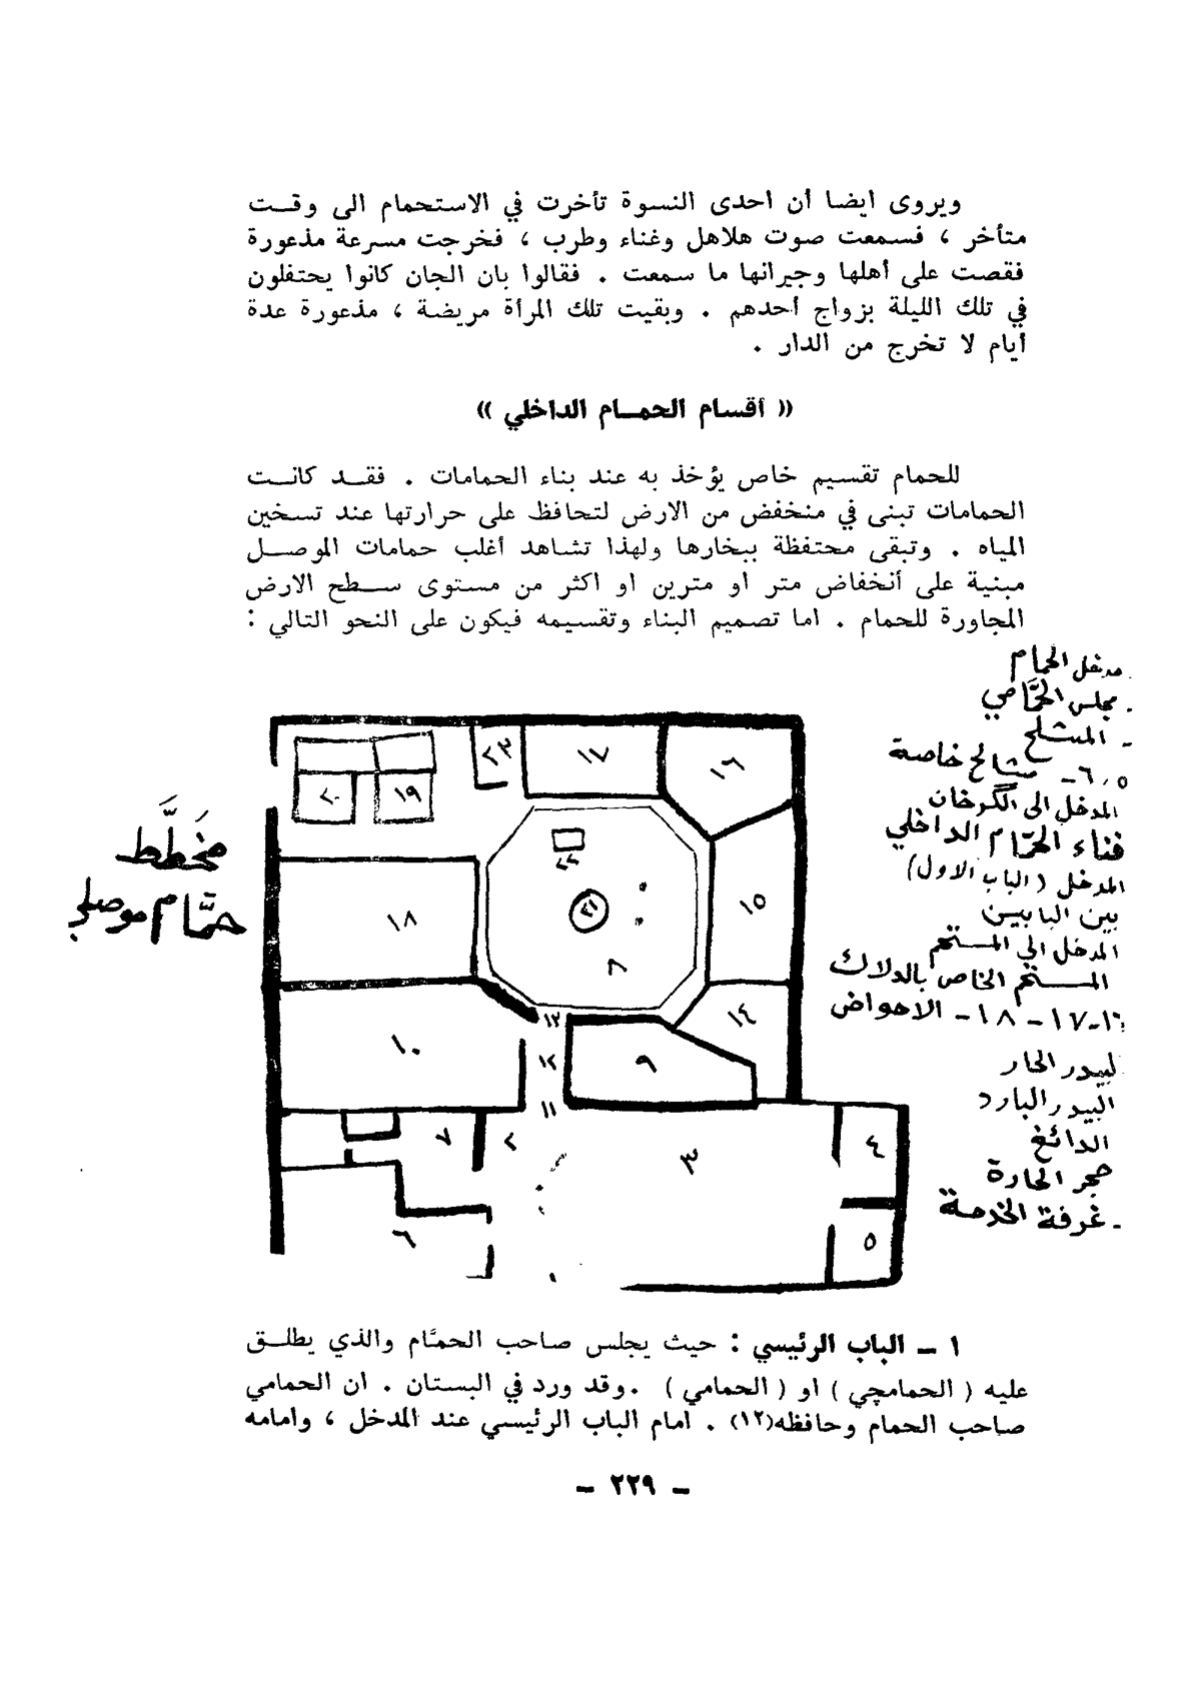 ويروى ايضا أن احدى النسوة تأخرت في الاستحمام الى وقـت
متأخر ، فسمعت صوت هلاهل وغناء وطرب ، فخرجت مسرعة مذعورة
فقصت على أهلها وجيرانها ما سمعت . فقالوا بان الجان كانوا يحتفلون
في تلك الليلة بزواج أحدهم . وبقيت تلك المرأة مريضة ، مذعورة عدة
أيام لا تخرج من الدار .
« أقسام الحمـام الداخلي »
للحمام تقسيم خاص يؤخذ به عند بناء الحمامات . فقـد كانـت
الحمامات تبنى في منخفض من الارض لتحافظ على حرارتها عند تسخين
المياه . وتبقى محتفظة ببخارها ولهذا تشاهد أغلب حمامات الموصـل
مبنية على أنخفاض متر او مترين او اكثر من مستوى سـطح الارض
المجاورة للحمام . اما تصميم البناء وتقسيمه فيكون على النحو التالي :
مدخل الحمام
- مجلس الحمَّامي
- المشلح
٥ ، ٦ - مشالح خاصة
المدخل الى الگرخان
فناء الحمّام الداخلي
المدخل (الباب الاول)
بين البابين
المدخل الى المستحم
المستحم الخاص بالدلاك
١٦-١٧-١٨- الاحواض
البيدر الحار
البيدر البارد
الدائغ
حجر الحارة
- غرفة الخدمة
مخَطَّط
حمَّام موصلي
٢٣
١٧
١٦
٢٠
١٩
٢٢
٢١
١٥
١٨
٨
١٤
١٣
١٠
١٢
٩
١١
٧
٢
٣
٤
٦
٥
١
١ – الباب الرئيسي : حيث يجلس صاحب الحمَّام والذي يطلـق
عليه ( الحمامچي ) او ( الحمامي ) . وقد ورد في البستان . ان الحمامي
صاحب الحمام وحافظه(١٢) . امام الباب الرئيسي عند المدخل ، وامامه
– ٢٢٩ –